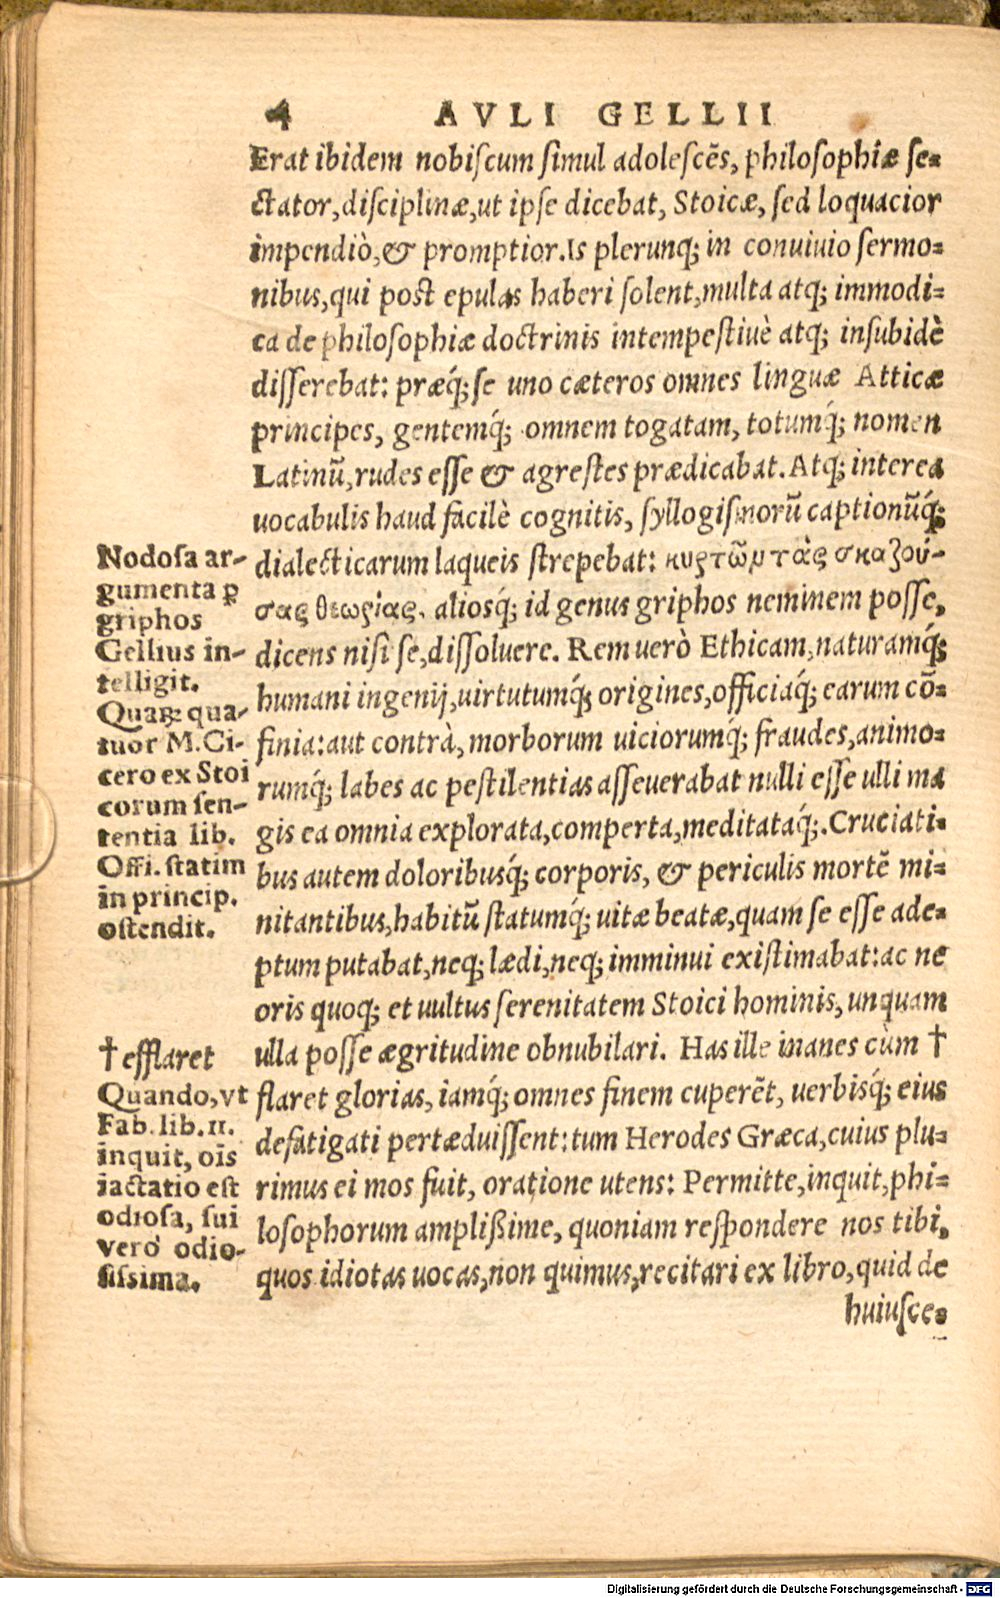 4 AVLI GELLII
Erat ibidem nobiscum simul adolescēs, philosophiæ se=
ctator, disciplinæ, ut ipse dicebat, Stoicæ, sed loquacior
impendiò, & promptior. Is plerunq; in conuiuio sermo=
nibus, qui post epulas haberi solent, multa atq; immodi=
ca de philosophiæ doctrinis intempestiuè atq; insubidè
disserebat: præq́; se uno cæteros omnes linguæ Atticæ
principes, gentemq́; omnem togatam, totumq́; nomen
Latinū, rudes esse & agrestes prædicabat. Atq; interea
uocabulis haud facilè cognitis, syllogismorū captionūq́;
dialecticarum laqueis strepebat: κυρτῶν τὰς σκαζού-
σας θεωρίας, aliosq; id genus griphos neminem posse,
dicens nisi se, dissoluere. Rem uerò Ethicam, naturamq́;
humani ingenij, uirtutumq́; origines, officiaq́; earum cō=
finia: aut contrà, morborum uiciorumq́; fraudes, animo=
rumq́; labes ac pestilentias asseuerabat nulli esse ulli ma
gis ea omnia explorata, comperta, meditataq́;. Cruciati=
bus autem doloribusq́; corporis, & periculis mortē mi=
nitantibus, habitū statumq́; uitæ beatæ, quam se esse ade=
ptum putabat, neq; lædi, neq; imminui existimabat: ac ne
oris quoq; et uultus serenitatem Stoici hominis, unquam
ulla posse ægritudine obnubilari. Has ille inanes cùm †
flaret glorias, iamq́; omnes finem cuperēt, uerbisq́; eius
defatigati pertæduissent: tum Herodes Græca, cuius plu=
rimus ei mos fuit, oratione utens: Permitte, inquit, phi=
losophorum amplißime, quoniam respondere nos tibi,
quos idiotas uocas, non quimus, recitari ex libro, quid de
huiusce=
Nodosa ar-
gumenta ꝑ
griphos
Gellius in-
telligit.
Quaꝝ qua-
tuor M. Ci-
cero ex Stoi
corum sen-
tentia lib.
Offi. statim
in princip.
ostendit.
† efflaret
Quando, vt
Fab. lib. 11.
inquit, oīs
iactatio est
odiosa, sui
vero odio-
sissima.
Digitalisierung gefördert durch die Deutsche Forschungsgemeinschaft - DFG